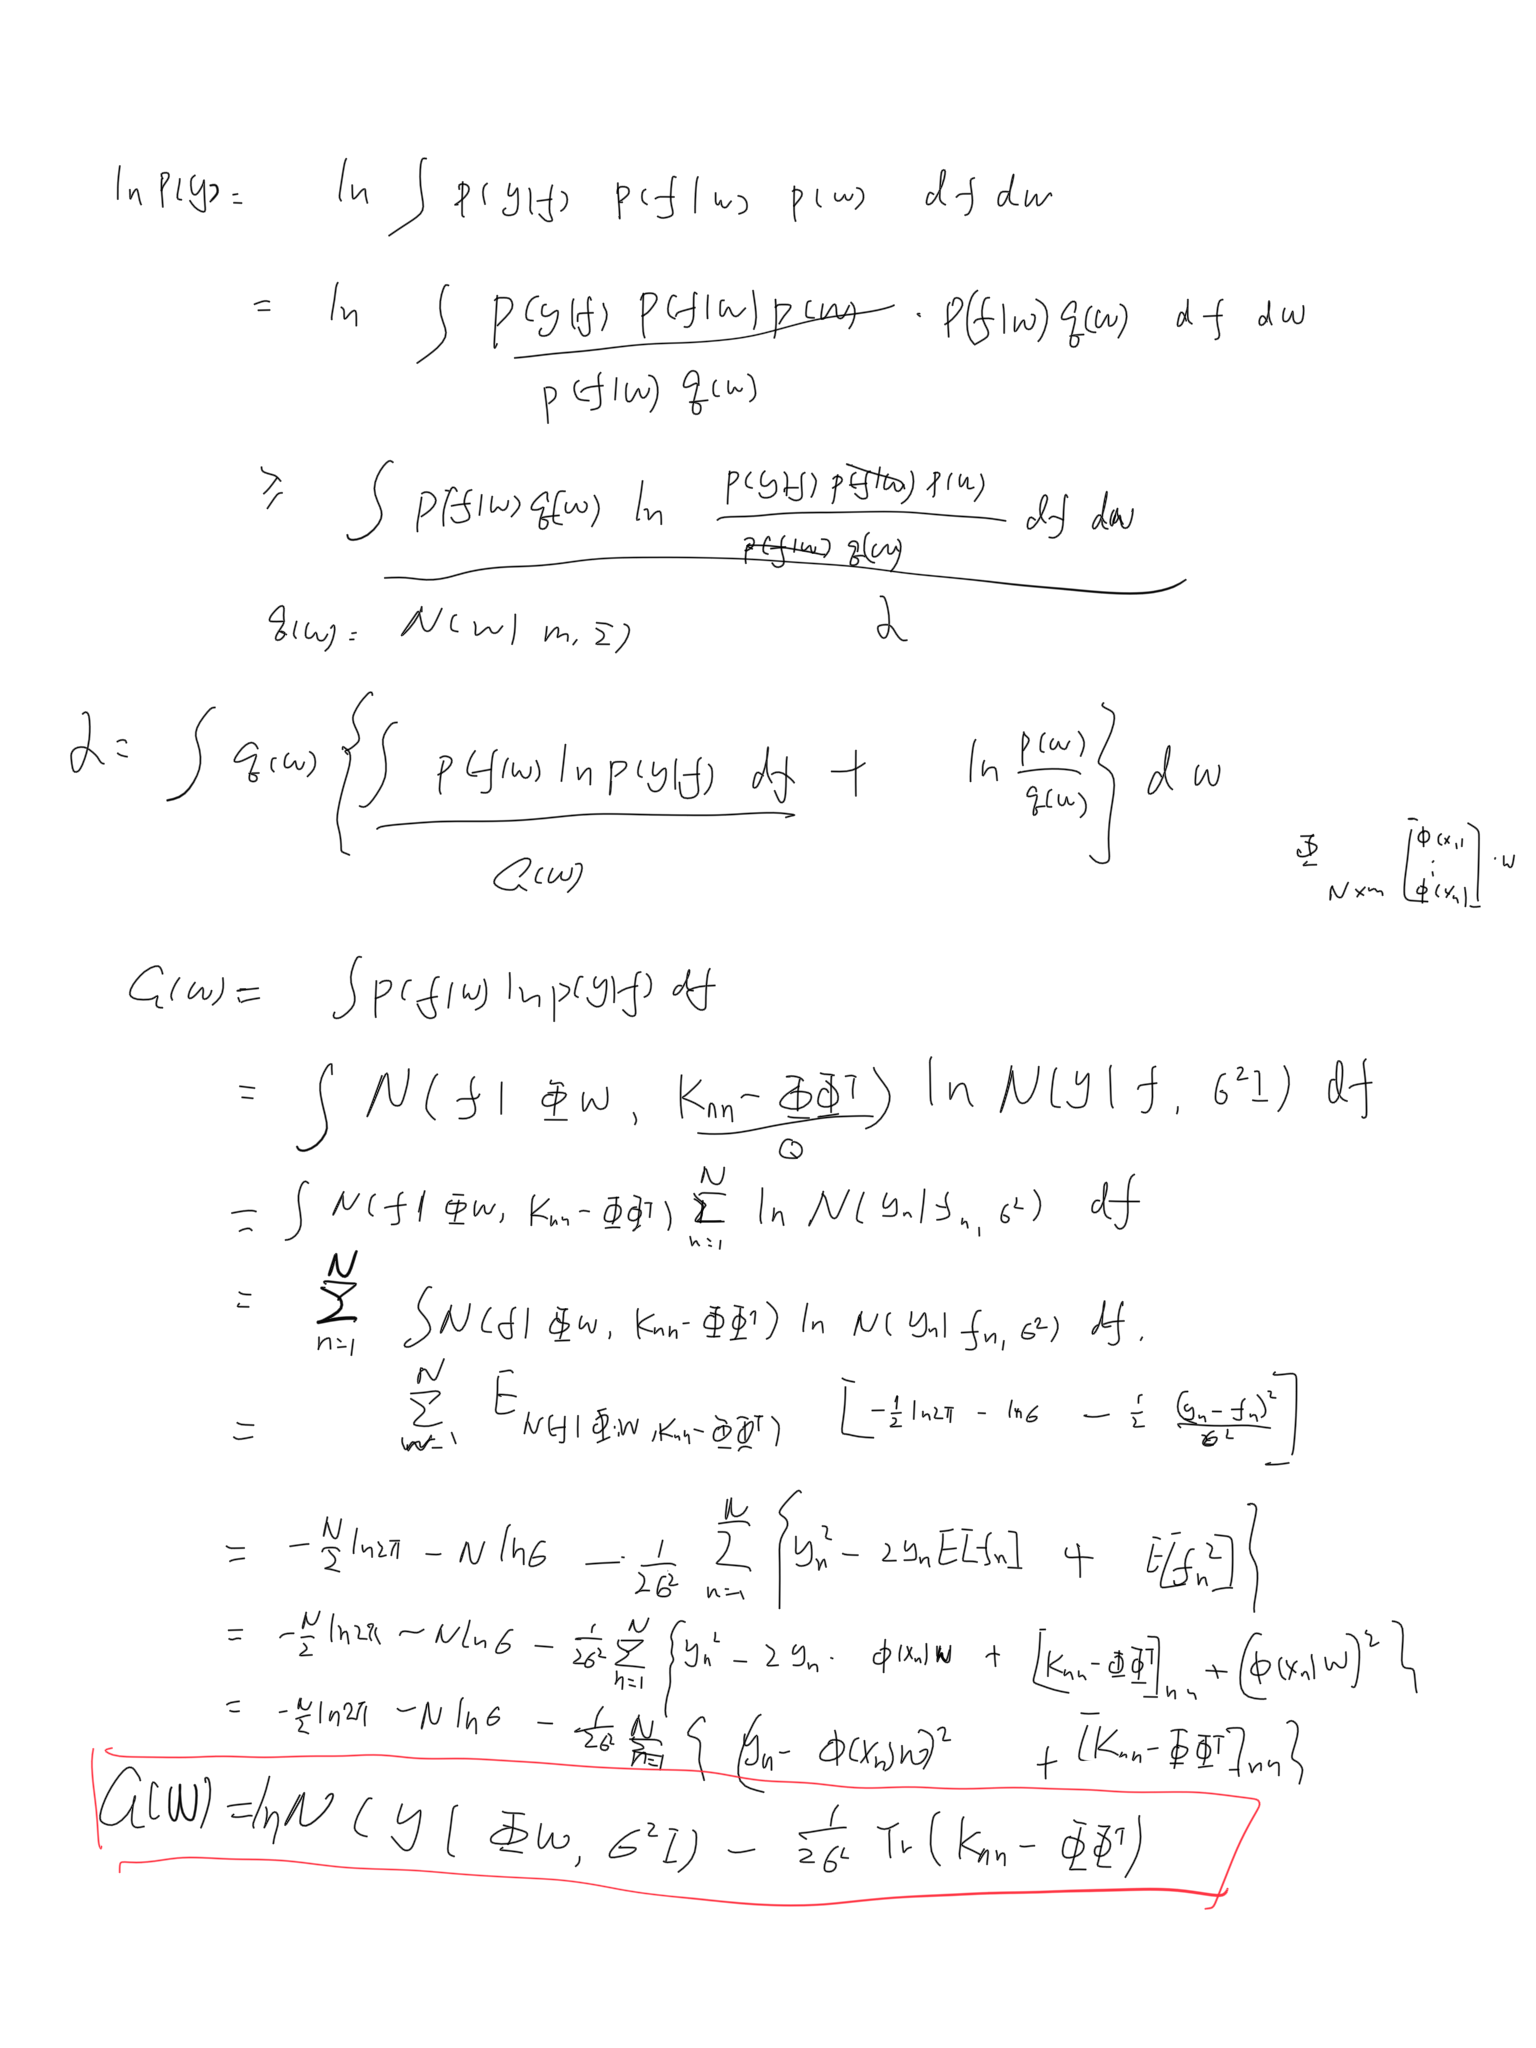 ln p(y) = ln ∫ p(y|f) p(f|w) p(w) df dw
= ln ∫ p(y|f) p(f|w) p(w) / p(f|w) q(w) · p(f|w) q(w) df dw
≥ ∫ p(f|w) q(w) ln p(y|f) p(f|w) p(w) / p(f|w) q(w) df dw
q(w) = N(w| m, Σ) L
L = ∫ q(w) { ∫ p(f|w) ln p(y|f) df + ln p(w) / q(w) } dw
G(w)
Φ N×m [φ(x₁) ⋮ φ(xₙ)] · w
G(w) = ∫ p(f|w) ln p(y|f) df
= ∫ N(f| Φw, Kₙₙ - ΦΦᵀ) ln N(y| f, σ²I) df
Q
= ∫ N(f| Φw, Kₙₙ - ΦΦᵀ) Σₙ₌₁ᴺ ln N(yₙ|fₙ, σ²) df
= Σₙ₌₁ᴺ ∫ N(f| Φw, Kₙₙ - ΦΦᵀ) ln N(yₙ| fₙ, σ²) df.
= Σₙ₌₁ᴺ E N(f| Φ·w, Kₙₙ - ΦΦᵀ) [ -½ ln2π - lnσ - ½ (yₙ - fₙ)² / σ² ]
= -N/2 ln2π - N lnσ - 1/2σ² Σₙ₌₁ᴺ { yₙ² - 2yₙ E[fₙ] + E[fₙ²] }
= -N/2 ln2π - N lnσ - 1/2σ² Σₙ₌₁ᴺ { yₙ² - 2yₙ · φ(xₙ)w + [Kₙₙ - ΦΦᵀ]ₙₙ + (φ(xₙ)w)² }
= -N/2 ln2π - N lnσ - 1/2σ² Σₙ₌₁ᴺ { (yₙ - φ(xₙ)w)² + [Kₙₙ - ΦΦᵀ]ₙₙ }
G(w) = ln N(y| Φw, σ²I) - 1/2σ² Tr(Kₙₙ - ΦΦᵀ)